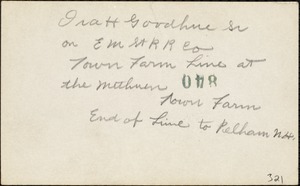 Ira H Goodhue Sr
on E M St R R Co
Town Farm Line at
the Methuen 048
Town Farm
End of Line to Pelham N.H.
321